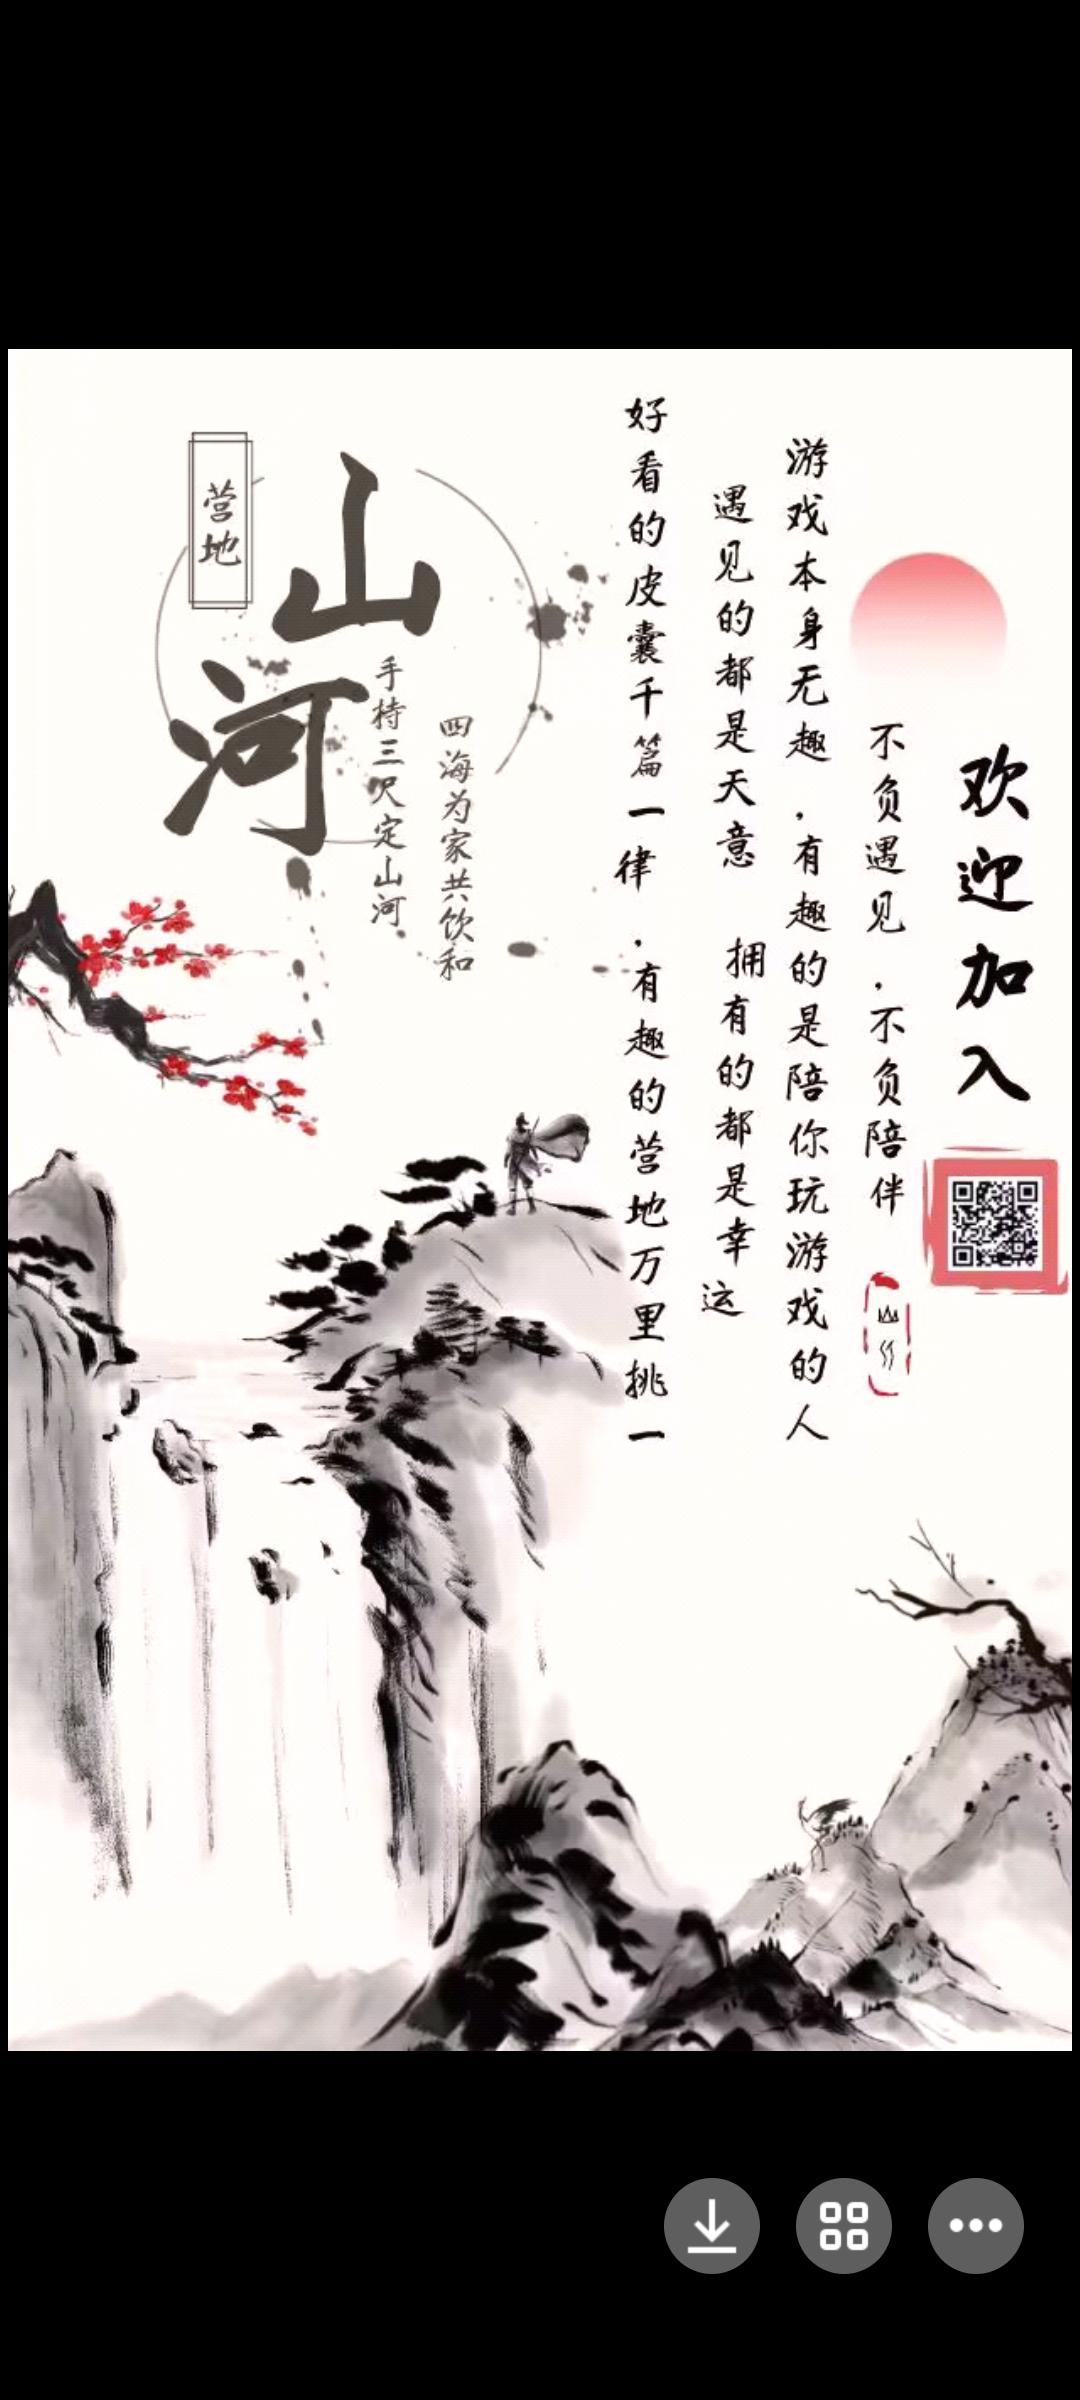 营地
山河
手持三尺定山河
四海为家共饮和
好看的皮囊千篇一律，有趣的营地万里挑一
遇见的都是天意 拥有的都是幸运
游戏本身无趣，有趣的是陪你玩游戏的人
不负遇见，不负陪伴
欢迎加入